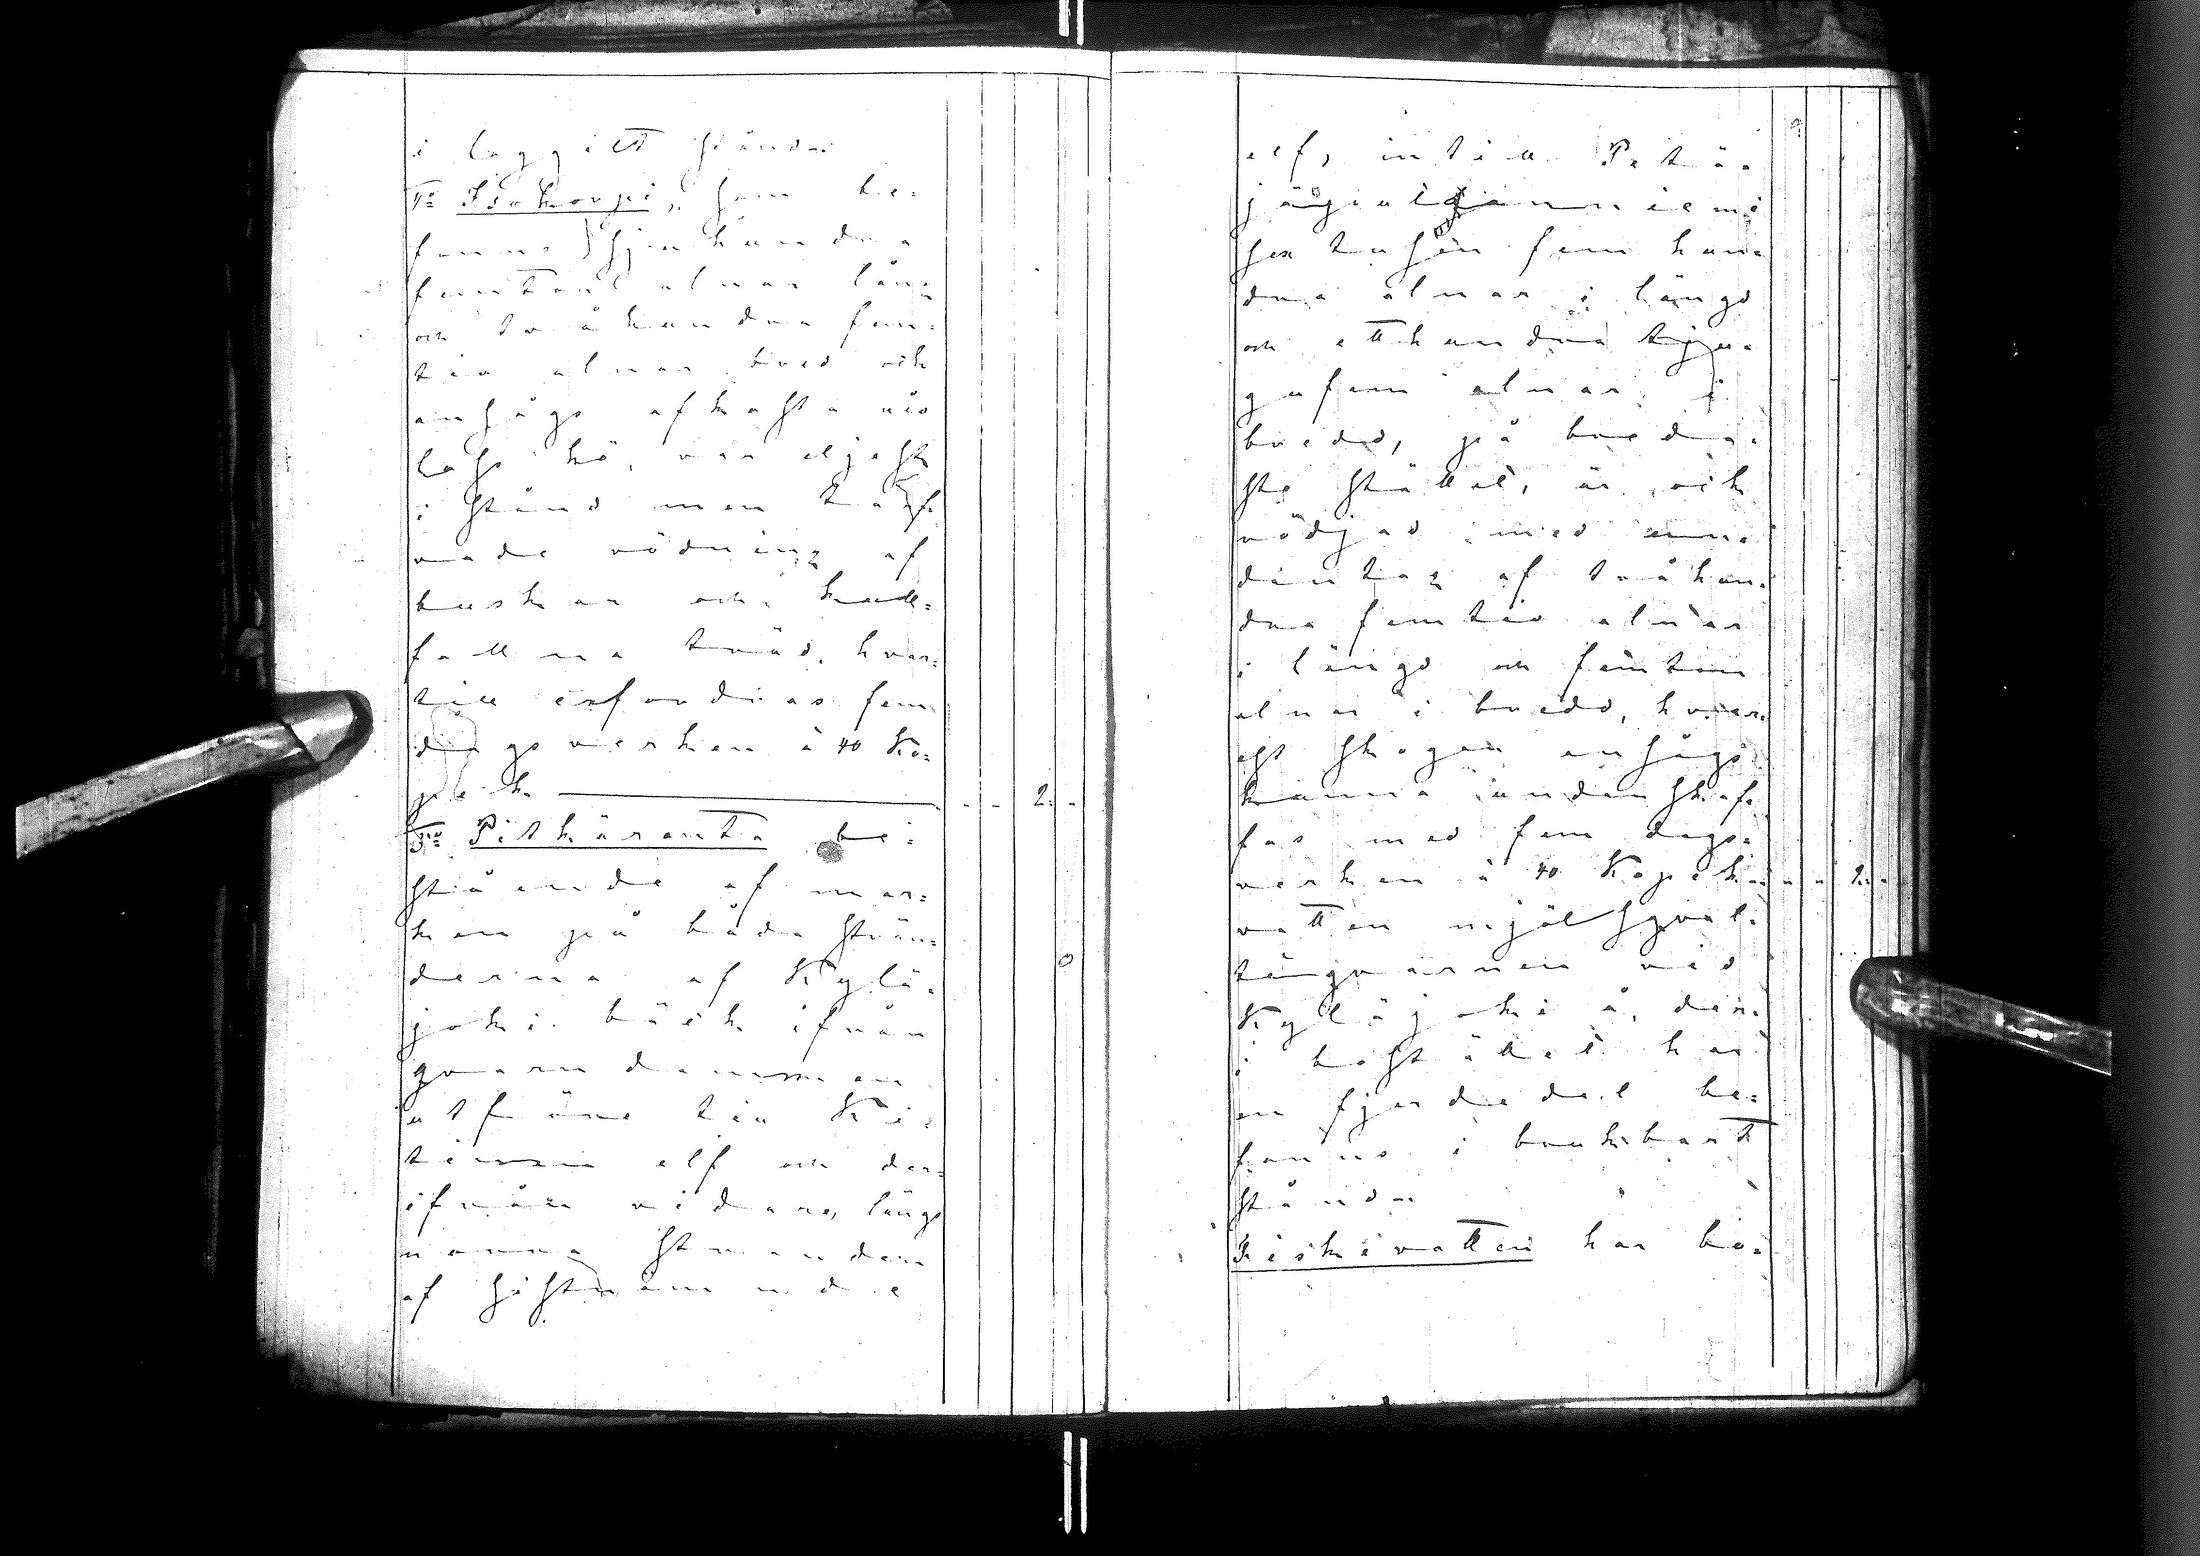 i laggilt stånd.
4:o Isokorpi, som be-
fanns sjuhundra
femton alnar lång
och tvåhundra fem-
tio alnar bred och
ansågs afkasta två
lass hö, var eljest
i stånd men behöf-
vade rödning af
buskar och kull-
fallna träd, hvar-
till erfordras fem
dagsverken à 40 Ko-
pek. 2. -
5:o Pitkäranta be-
stående af mar-
ken på båda strän-
derna af Kylä-
joki bäck ifrån
qvarndammen
utföre till Ki-
tinen elf och der-
ifrån vidare längs
norra stranden
af sistnämnde
elf, intill Petä-
jäsaajanniemi
sex tusen fem hun-
dra alnar i längd
och etthundra tju-
gufem alnar i
bredd, på breda-
ste stället, är och
rödjad med en
af tvåhun-
dra femtio alnar
i längd och femton
alnar i bredd, hvar-
est skogen ansågs
kunna undanskaf-
fas med fem dags-
verken à 40 Kopek. 2. -
vatten mjöl sqval-
tänqvarnen vid
Kyläjoki å, der-
i bostället har
en fjerdedel be-
fanns i brukbart
stånd.
Fiskevatten har bo-